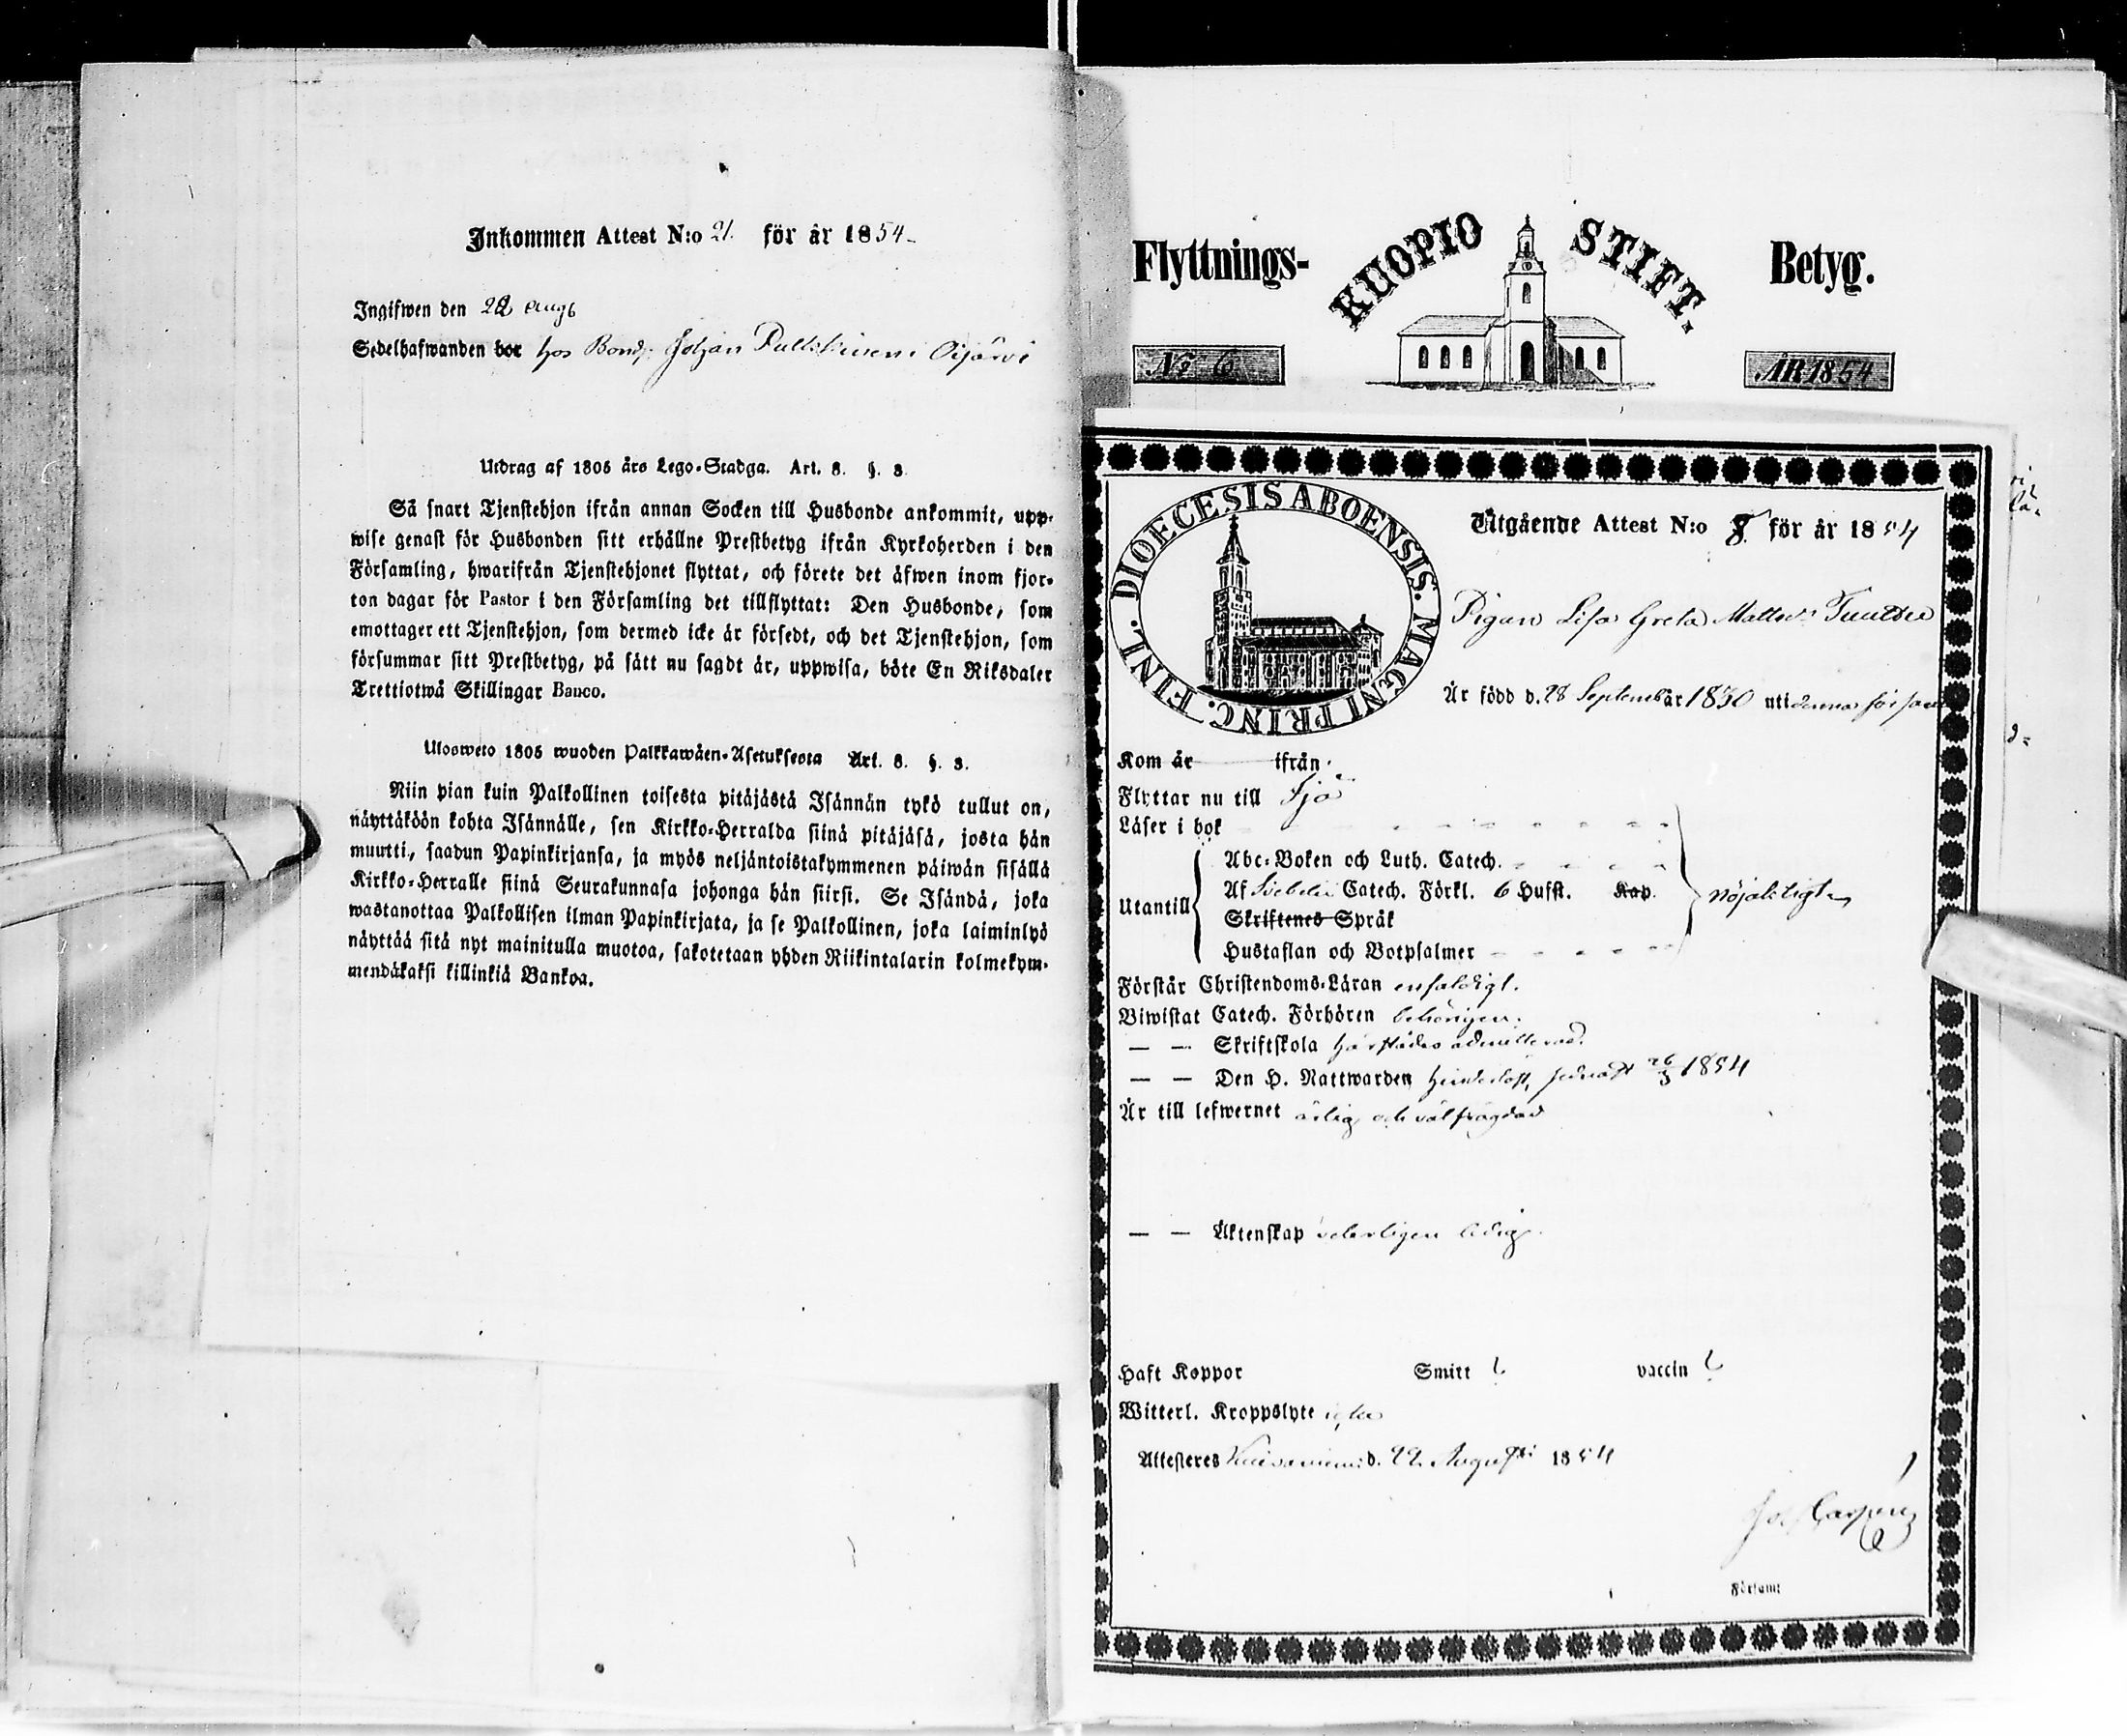 Inkommen Attest N:o 21. för år 1854.
Ingifwen den 22 Aug
Sedelhafwanden bor hos Bond. Johan i Oijärvi
Utdrag af 1805 års Lego-Stadga. Art. 8. §. 8.
Så snart Tjenstehjon ifrån annan Socken till Husbonde ankommit, upp-
wise genast för Husbonden sitt erhållne Prestbetyg ifrån Kyrkoherden i den
Församling, hwarifrån Tjenstehjonet flyttat, och förete det äfwen inom fjor-
ton dagar för Pastor i den Församling det tillflyttat: Den Husbonde, som
emottager ett Tjenstehjon, som dermed icke är försedt, och det Tjenstehjon, som
försummar sitt Prestbetyg, på sätt nu sagdt är, uppwisa, böte En Riksdaler
Trettiotwå Skillingar Banco.
Ulosweto 1805 wuoden Palkkawäen-Asetuksesta Art. 8. §. 8.
Niin pian kuin Palkollinen toisesta pitäjästä Isännän tykö tullut on,
näyttäköön kohta Isännälle, sen Kirkko-Herralda siinä pitäjäsä, josta hän
muutti, saadun Papinkirjansa, ja myös neljäntoistakymmenen päiwän sisällä
Kirkko-Herralle siinä Seurakunnasa johonga hän siirsi. Se Isändä, joka
wastanottaa Palkollisen ilman Papinkirjata, ja se Palkollinen, joka laiminlyö
näyttää sitä nyt mainitulla muotoa, sakotetaan yhden Riikintalarin kolmekym-
mendäkaksi killinkiä Bankoa.
Flyttnings- KUOPIO STIFT. Betyg.
No 6 ÅR 1854
DIOECESIS ABOENSIS. MAGNI PRINC. FINL.
Utgående Attest N:o 8. för år 1854
Pigan Lisa Greta Mattsd:r
Är född d. 28 September 1830 uti denna förs
Kom år ifrån
Flyttar nu till Ijo
Läser i bok
Abc-Boken och Luth. Catech.
Utantill Af Svebelii Catech. Förkl. 6 Hufst. Kap. nöjaktigt
Skriftenes Språk
Hustaflan och Botpsalmer
Förstår Christendoms-Läran enfaldigt.
Biwistat Catech. Förhören behörigen.
— — Skriftskola härstädes admitterad.
— — Den H. Nattwarden hinderlöst, sednast 26/3 1854
Är till lefwernet ärlig och välfrägdad
— — Äktenskap veterligen ledig.
Haft Koppor Smitt ? vaccin ?
Witterl. Kroppslyte icke
Attesteras d. 22 Augusti 1854
Församl